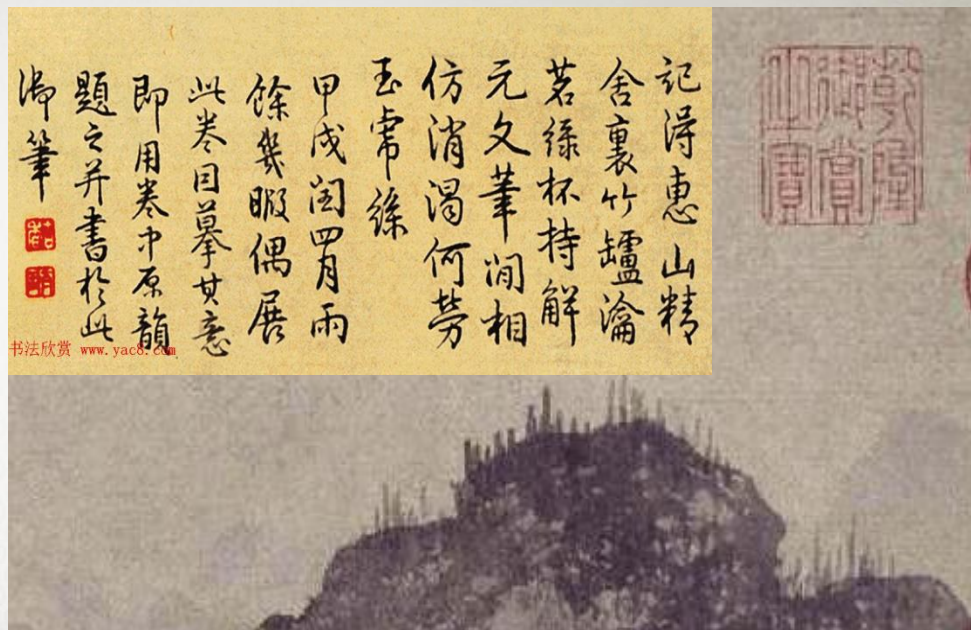 乾隆
御賞
之寶
記得惠山精
舍裏竹罏瀹
茗綠杯持解
元文筆閒相
仿消渴何勞
玉虎絲
甲戌閏四月雨
餘幾暇偶展
此卷因摹其意
即用卷中原韻
題之并書於此
御筆
书法欣赏 www.yac8.com